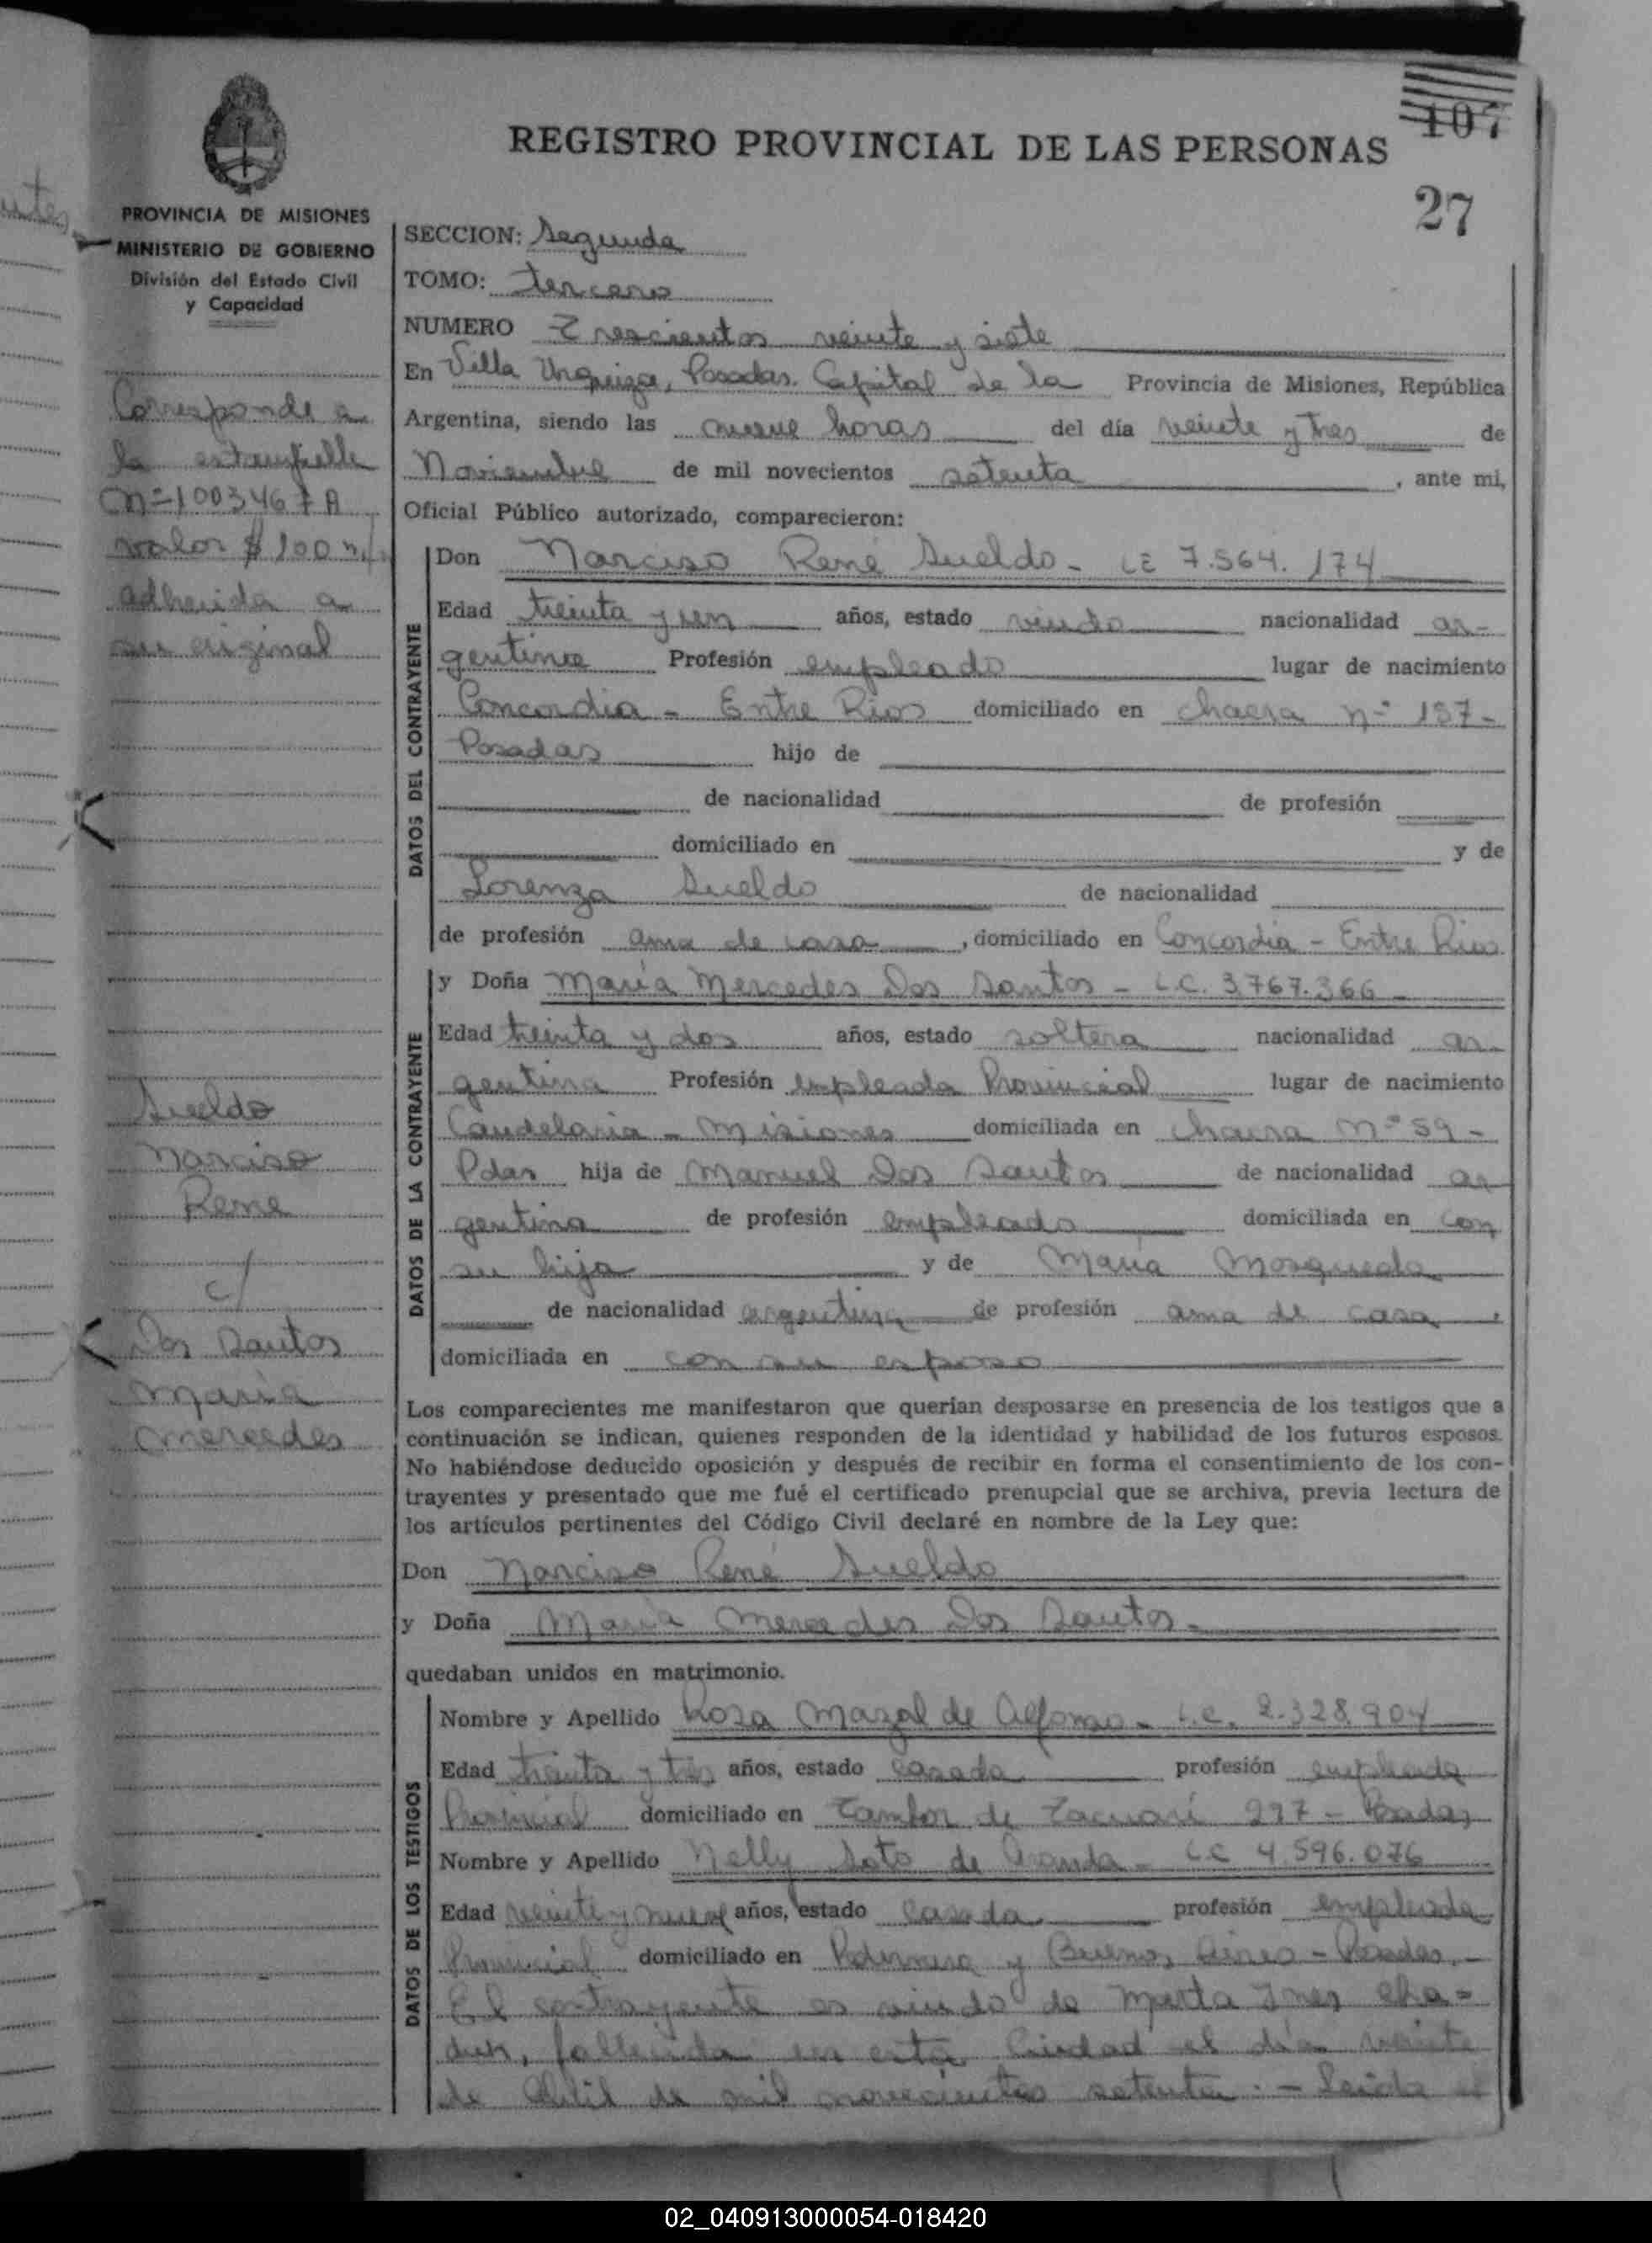 107
REGISTRO PROVINCIAL DE LAS PERSONAS
27
PROVINCIA DE MISIONES
MINISTERIO DE GOBIERNO
División del Estado Civil
y Capacidad
Corresponde a
la estampilla
Nº 1003467 A
valor $ 100 m/n
adherida a
su original
Sueldo
Narciso
Rene
c/
Dos Santos
Maria
Mercedes
SECCION: Segunda
TOMO: tercero
NUMERO Trescientos veinte y siete
En Villa Urquiza, Posadas. Capital de la Provincia de Misiones, República
Argentina, siendo las nueve horas del día veinte y tres de
Noviembre de mil novecientos setenta, ante mi,
Oficial Público autorizado, comparecieron:
DATOS DEL CONTRAYENTE
Don Narciso René Sueldo - LE 7.564.174
Edad treinta y un años, estado viudo nacionalidad ar-
gentina Profesión empleado lugar de nacimiento
Concordia - Entre Rios domiciliado en chacra nº 137-
Posadas hijo de
de nacionalidad de profesión
domiciliado en y de
Lorenza Sueldo de nacionalidad
de profesión ama de casa, domiciliado en Concordia - Entre Rios
DATOS DE LA CONTRAYENTE
y Doña María Mercedes Dos Santos - L.C. 3.767.366 -
Edad treinta y dos años, estado soltera nacionalidad ar-
gentina Profesión empleada Provincial lugar de nacimiento
Candelaria - Misiones domiciliada en chacra nº 59 -
Pdas hija de Manuel Dos Santos de nacionalidad ar
gentina de profesión empleado domiciliada en con
su hija y de María Mosqueda
de nacionalidad argentina de profesión ama de casa,
domiciliada en con su esposo
Los comparecientes me manifestaron que querían desposarse en presencia de los testigos que a
continuación se indican, quienes responden de la identidad y habilidad de los futuros esposos.
No habiéndose deducido oposición y después de recibir en forma el consentimiento de los con-
trayentes y presentado que me fué el certificado prenupcial que se archiva, previa lectura de
los artículos pertinentes del Código Civil declaré en nombre de la Ley que:
Don Narciso René Sueldo
y Doña María Mercedes Dos Santos -
quedaban unidos en matrimonio.
DATOS DE LOS TESTIGOS
Nombre y Apellido Rosa Mazal de Alfonso - L.C. 2.328.904
Edad treinta y tres años, estado casada profesión empleada
Provincial domiciliado en Tambor de Tacuarí 297 - Posadas
Nombre y Apellido Nelly Soto de Aranda - LC 4.596.076
Edad veinte y nueve años, estado casada profesión empleada
Provincial domiciliado en y Buenos Aires - Posadas.-
El contrayente es viudo de Marta Ines
fallecida en esta Ciudad el día veinte
de Abril de mil novecientos setenta.- Leida el
02_040913000054-018420